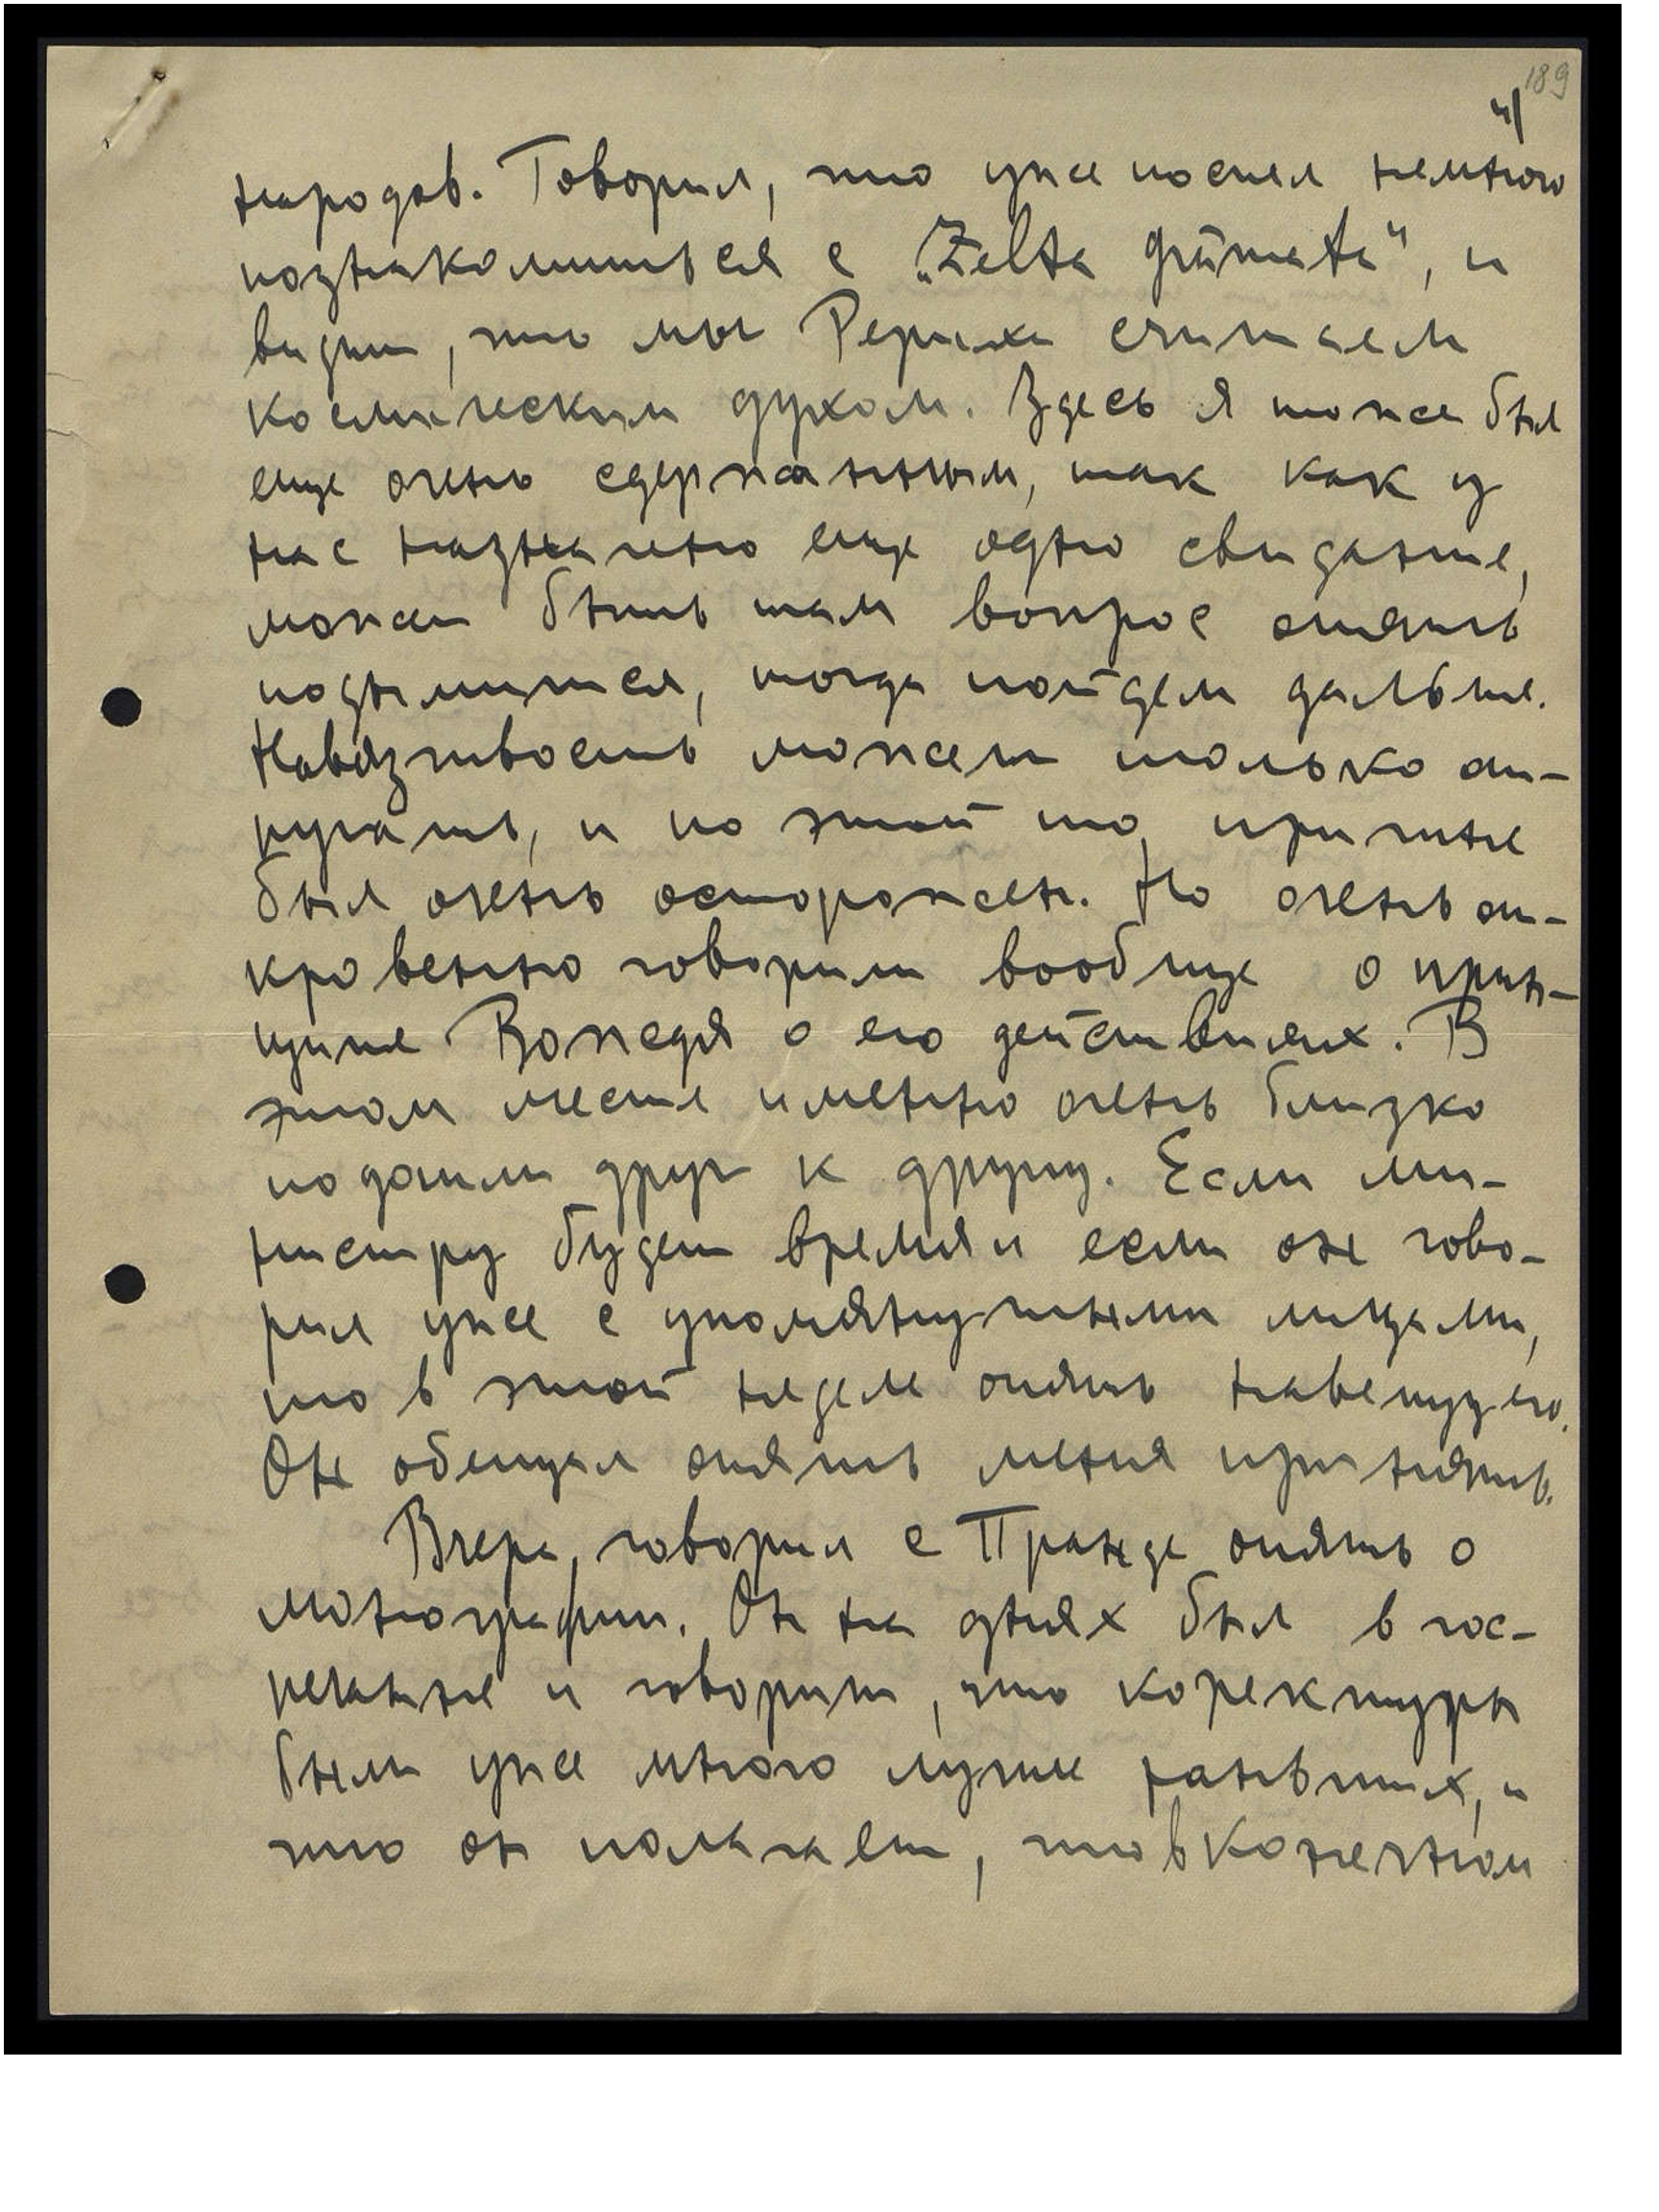 189
4/
народов. Говорил, что уже поспел немного
познакомиться с „Zelta grāmata“, и
видит, что мы Рериха считаем
космическим духом. Здесь я тоже был
еще очень сдержанным, так как у
нас назначено еще одно свидание,
может быть там вопрос опять
подымится, тогда пойдем дальше.
Навязчивость может только от-
пугать, и по этой то причине
был очень осторожен. Но очень от-
кровенно говорили вообще о прин-
ципе Вождя о его действиях. В
этом месте именно очень близко
подошли друг к другу. Если ми-
нистру будет время и если он гово-
рил уже с упомянутыми лицами,
то в этой неделе опять навещу его.
Он обещал опять меня принять.
Вчера говорил с Пранде опять о
монографии. Он на днях был в гос-
печатне и говорит, что коректуры
были уже много лучше раньших, и
что он полагает, что в конечном